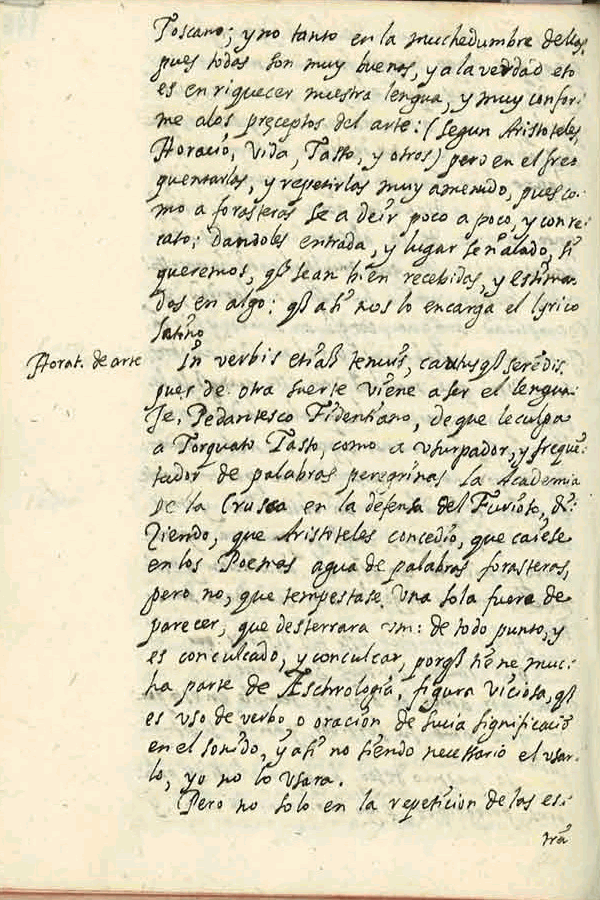 Toscano; y no tanto en la muchedumbre dellas,
pues todas son muy buenas, y a la verdad esto
es enriquecer nuestra lengua, y muy confor-
me a los preceptos del arte: (segun Aristoteles,
Horacio, Vida, Tasso, y otros) pero en el fre-
quentarlas, y repetirlas muy amenudo, pues co-
mo a forasteras se a de ir poco a poco, y con re-
cato; dandoles entrada, y lugar señalado, si
queremos, q̃ sean bien recebidas, y estima-
das en algo: q̃ asi nos lo encarga el lyrico
latino
Horat. de arte
In verbis etiã tenuis, cautusq̃ serẽdis.
pues de otra suerte viene a ser el lengua-
je, Pedantesco Fidentiano, de que le culpa
a Torquato Tasso, como a usurpador, y freque-
tador de palabras peregrinas la Academia
de la Crusca en la defensa del Furioso, di-
ziendo, que Aristoteles concedio, que caiese
en los Poemas agua de palabras forasteras,
pero no, que tempestase. Una sola fuera de
parecer, que desterrara vm: de todo punto, y
es conculcado, y conculcar, porq̃ tiene muc-
ha parte de Æschrologia, figura viciosa, q̃
es uso de verbo o oracion de sucia significaciõ
en el sonido, y asi no siendo necessario el usar-
lo, yo no lo usara.
Pero no solo en la repeticion de las es-
trã